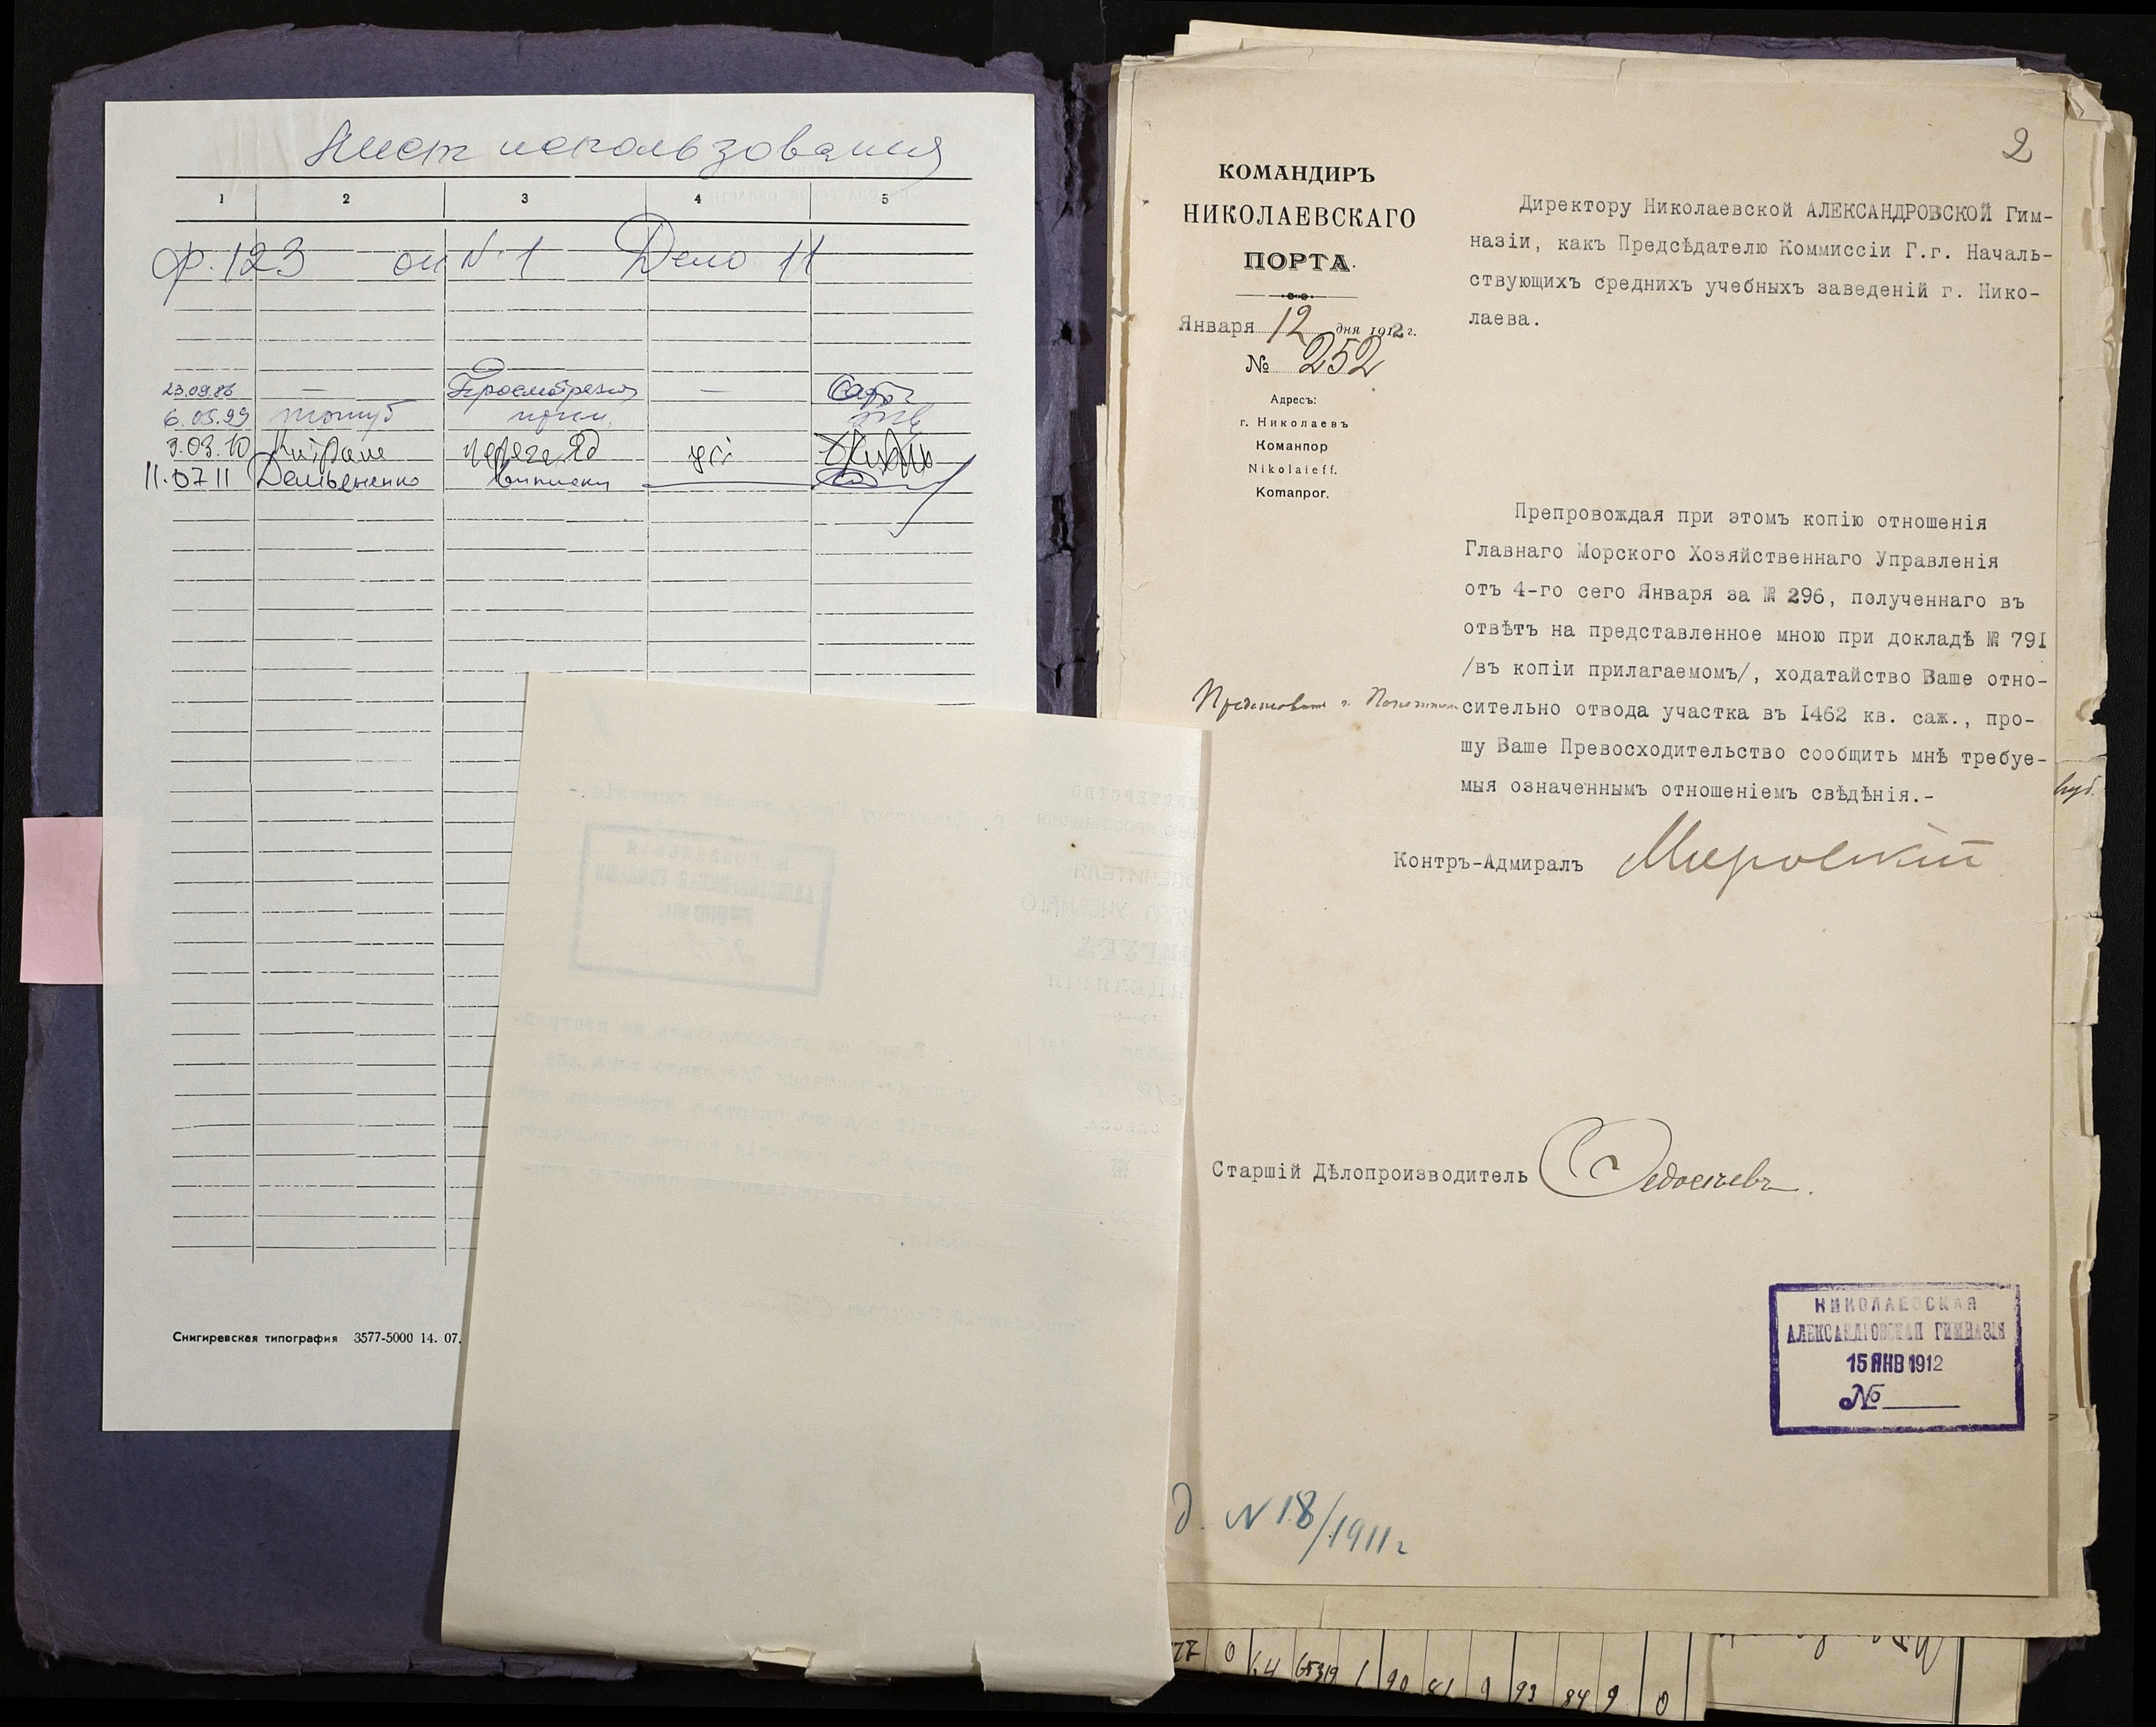 Лист использования
1 2 3 4 5
ф. 123 оп N. 1 Дело 11
23.09.86 — Просмотрено —
6.05.99
3.03.10 перегляд усі
11.07 11 Демьяненко выписки
Снигиревская типография 3577-5000 14. 07.
2
КОМАНДИРЪ
НИКОЛАЕВСКАГО
ПОРТА.
Января 12 дня 1912 г.
№ 252
Адресъ:
г. Николаевъ
Команпор
Nikolaieff.
Komanpor.
Директору Николаевской АЛЕКСАНДРОВСКОЙ Гим-
назіи, какъ Предсѣдателю Коммиссіи Г.г. Началь-
ствующихъ среднихъ учебныхъ заведеній г. Нико-
лаева.
Препровождая при этомъ копію отношенія
Главнаго Морского Хозяйственнаго Управленія
отъ 4-го сего Января за № 296, полученнаго въ
отвѣтъ на представленное мною при докладѣ № 791
/въ копіи прилагаемомъ/, ходатайство Ваше отно-
сительно отвода участка въ I462 кв. саж., про-
шу Ваше Превосходительство сообщить мнѣ требуе-
мыя означеннымъ отношеніемъ свѣдѣнія.-
Контръ-Адмиралъ Мировскій
Старшій Дѣлопроизводитель Федосѣевъ.
НИКОЛАЕВСКАЯ
АЛЕКСАНДРОВСКАЯ ГИМНАЗІЯ
15 ЯНВ 1912
№
д. N 18/1911 г
77 0 64 65319 1 90 81 9 93 84 9 0